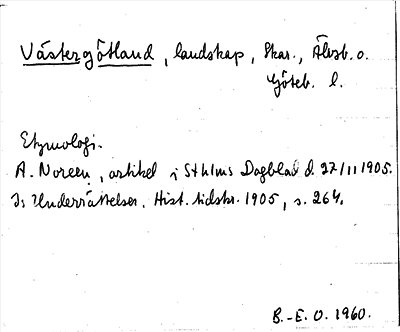 Västergötland, landskap, Skar., Älvsb. o.
Göteb. l.
Etymologi.
A. Noreen, artikel i Sthlms Dagblad d. 27/11 1905.
Underrättelser. Hist. tidskr. 1905, s. 264.
B.-E. O. 1960.